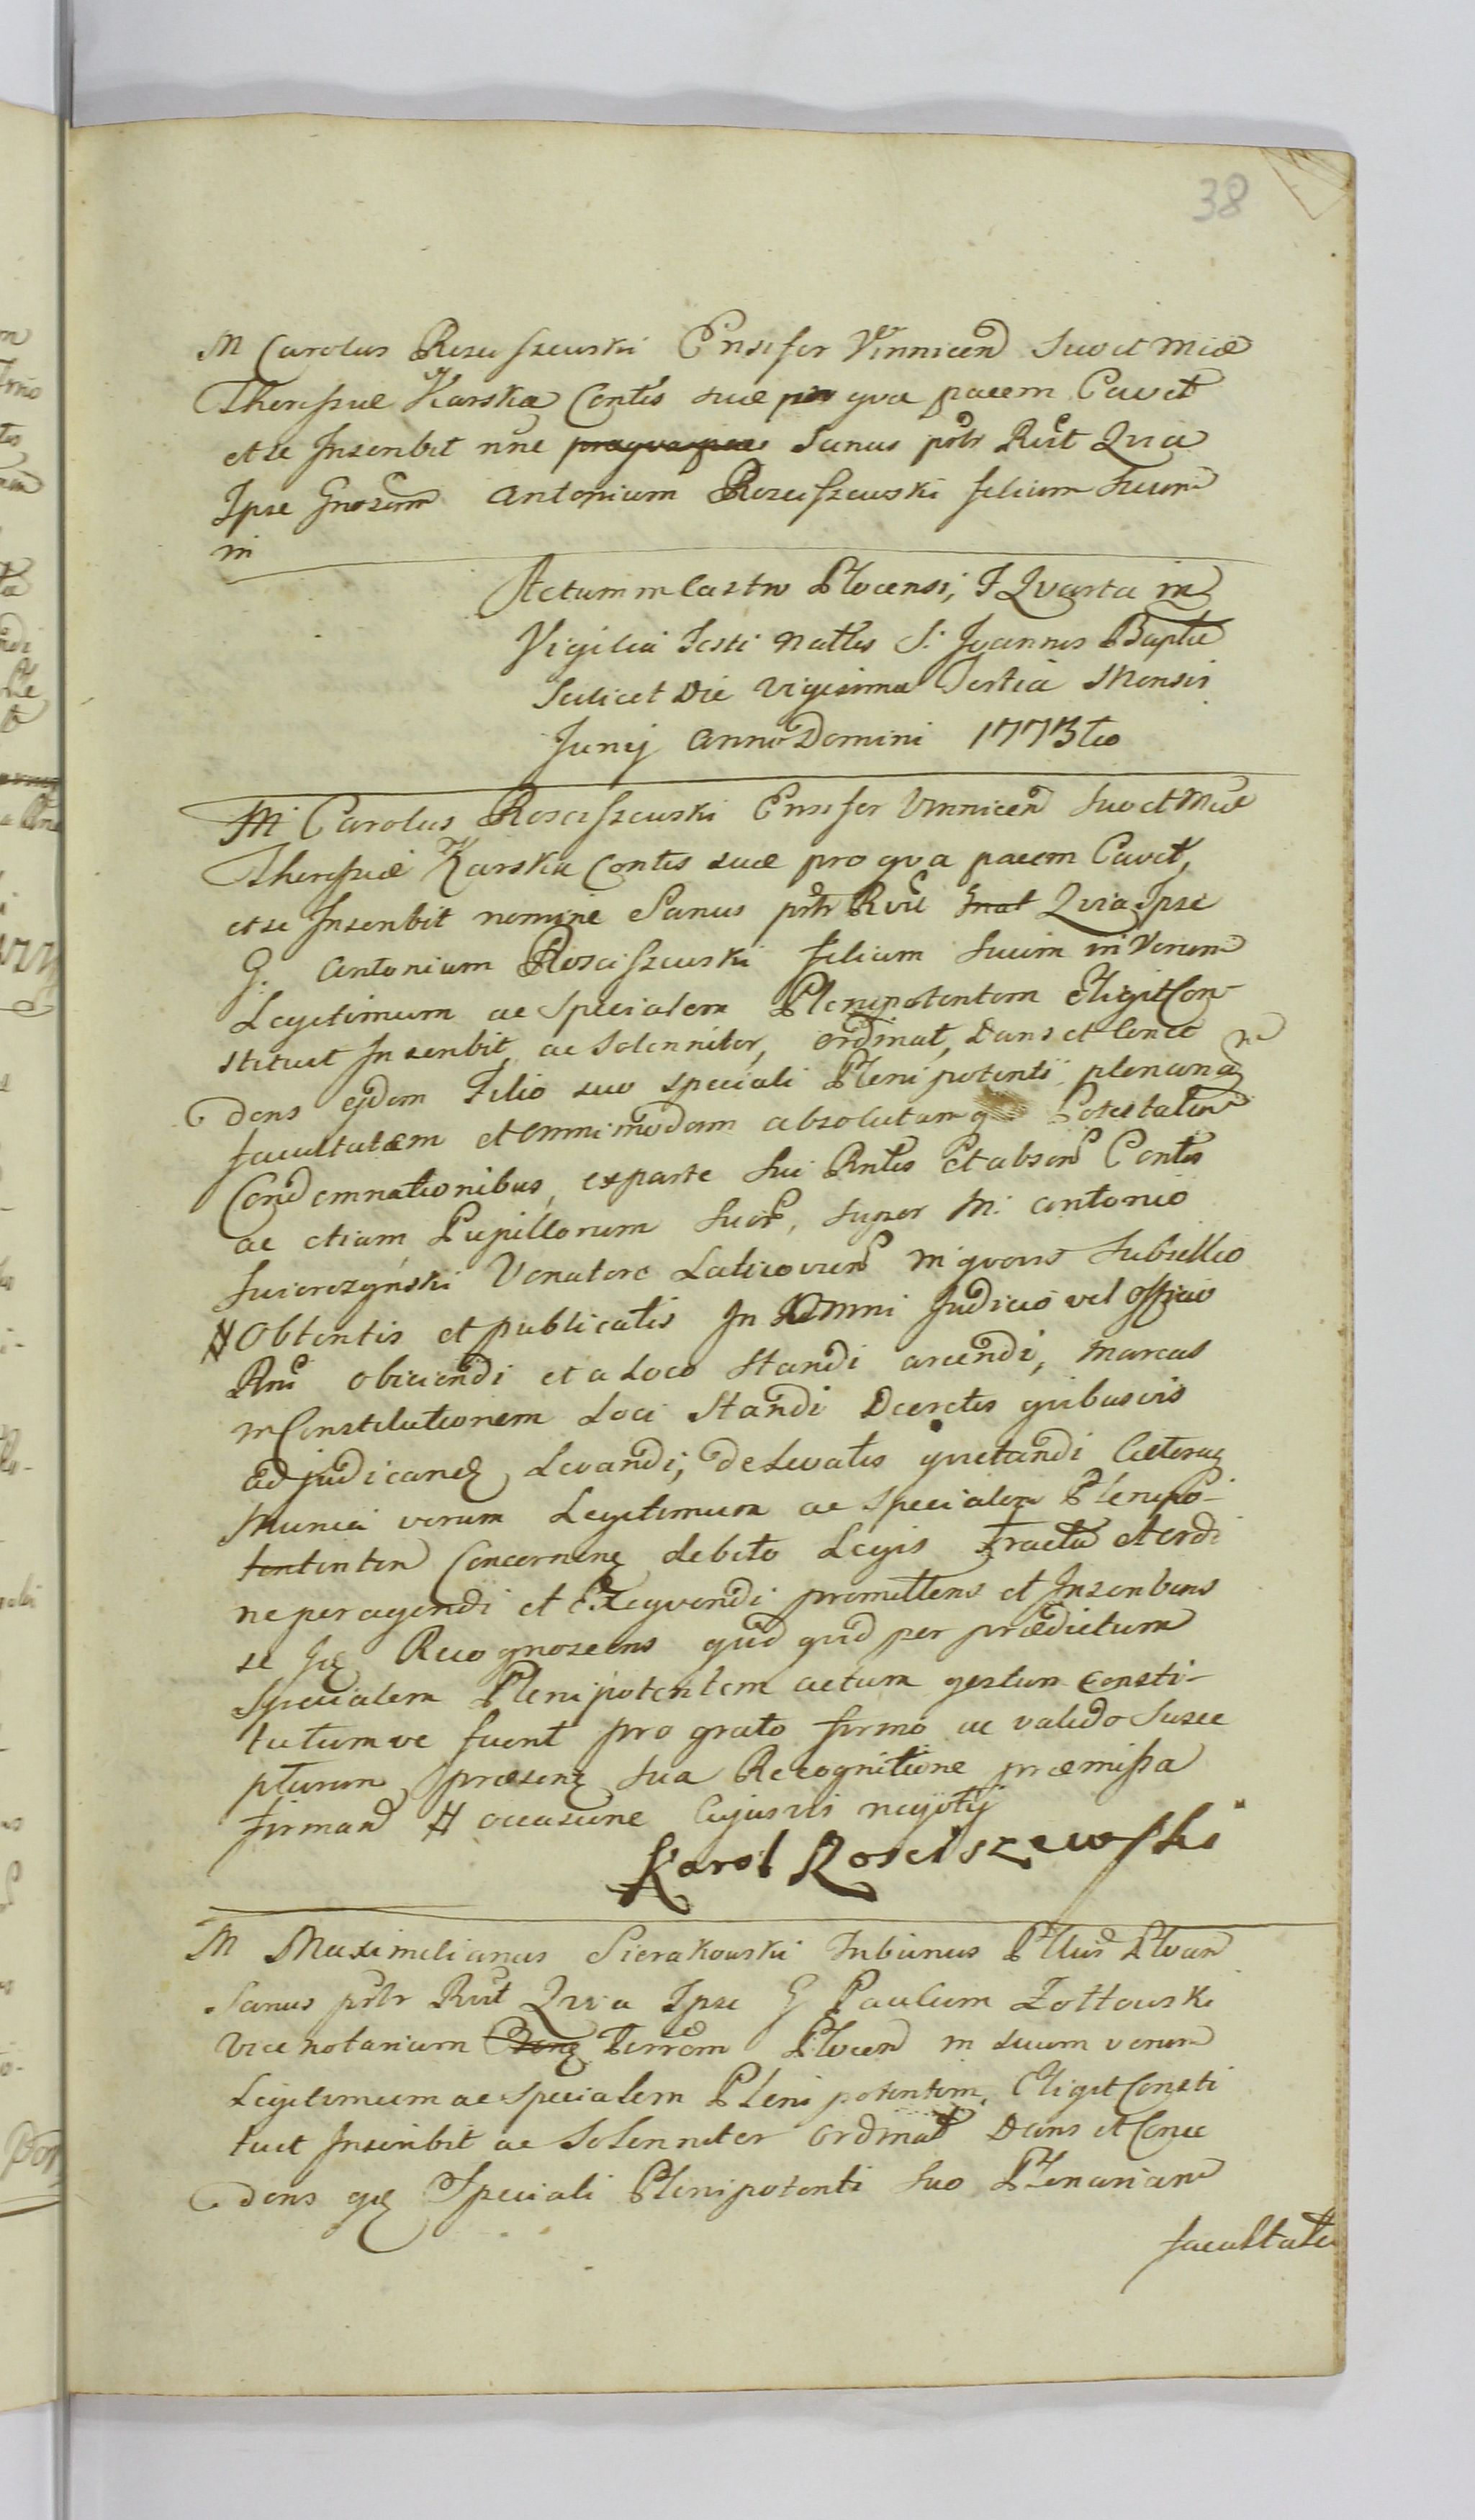 38
M Carolus Rosciszewski Ensifer Vinnicen Suo et Mcæ
Theressiæ Karska Contis suæ pro qva pacem Cavet
et se Inscribit nne pro qva pace Sanus pntr Rcit Qvia
Ipse Gnosum Antonium Rosciszewski filium Suum
in
Actum in Castro Plocensi, F Qvarta in
Vigilia Festi Nattis S: Joannis Baptæ
Scilicet Die Vigesima Tertia Mensis
Junij Anno Domini 1773tio
M Carolus Rosciszewski Ensifer Vinnicen Suo et Mcæ
Theressiæ Karska Contis suæ pro qva pacem Cavet,
et se Inscribit nomine Sanus pntr Qvia Ipse
G. Antonium Rosciszewski filium Suum in Verum
Legitimum ac Specialem Plenipotentem Eligit Con-
stituit Inscribit ac Solenniter, ordinat, Dans et Conce
dens ejdem Filio suo speciali Plenipotenti plenariam
facultatem et omnimodam absolutamq Potestatem
Condemnationibus, ex parte Sui Rntis et absen Contis
ac etiam Pupillorum Suor, super M: Antonio
Swierczynski Venatore Laticovien in qvovis Subsellio
Obtentis et publicatis In Omni Judicio vel Officio
Rni obiiciendi et a Loco Standi arcendi, Marcas
in Constitutionem Loci Standi Decretis qvibusvis
adjudicand Levandi, de Levatis qvietandi Cæteraq
Munia verum Legitimum ac Specialem Plenipo-
tentem Concernen debito Legis Tractu et ordi
ne peragendi et Exeqvendi promittens et Inscribens
se Hq Recognoscens qvid qvid per prædictum
Specialem Plenipotentem actum gestum consti-
tutumve fuerit pro grato firmo ac valido Susce
pturum præsenq Sua Recognitione præmissa
firmand occasione Cujusvis negotij
Karol Rosciszewski
M Maximilianus Sierakowski Tribunus Plocen
Sanus pntr Rcit Qvia Ipse G Paulum Zottowski
Vice Notarium Terrem Plocen in suum verum
Legitimum ac Specialem Plenipotentem, Eligit Consti
tuit Inscribit ac Solenniter Ordinat Dans et Conce
dens Speciali Plenipotenti Suo Plenariam
facultate